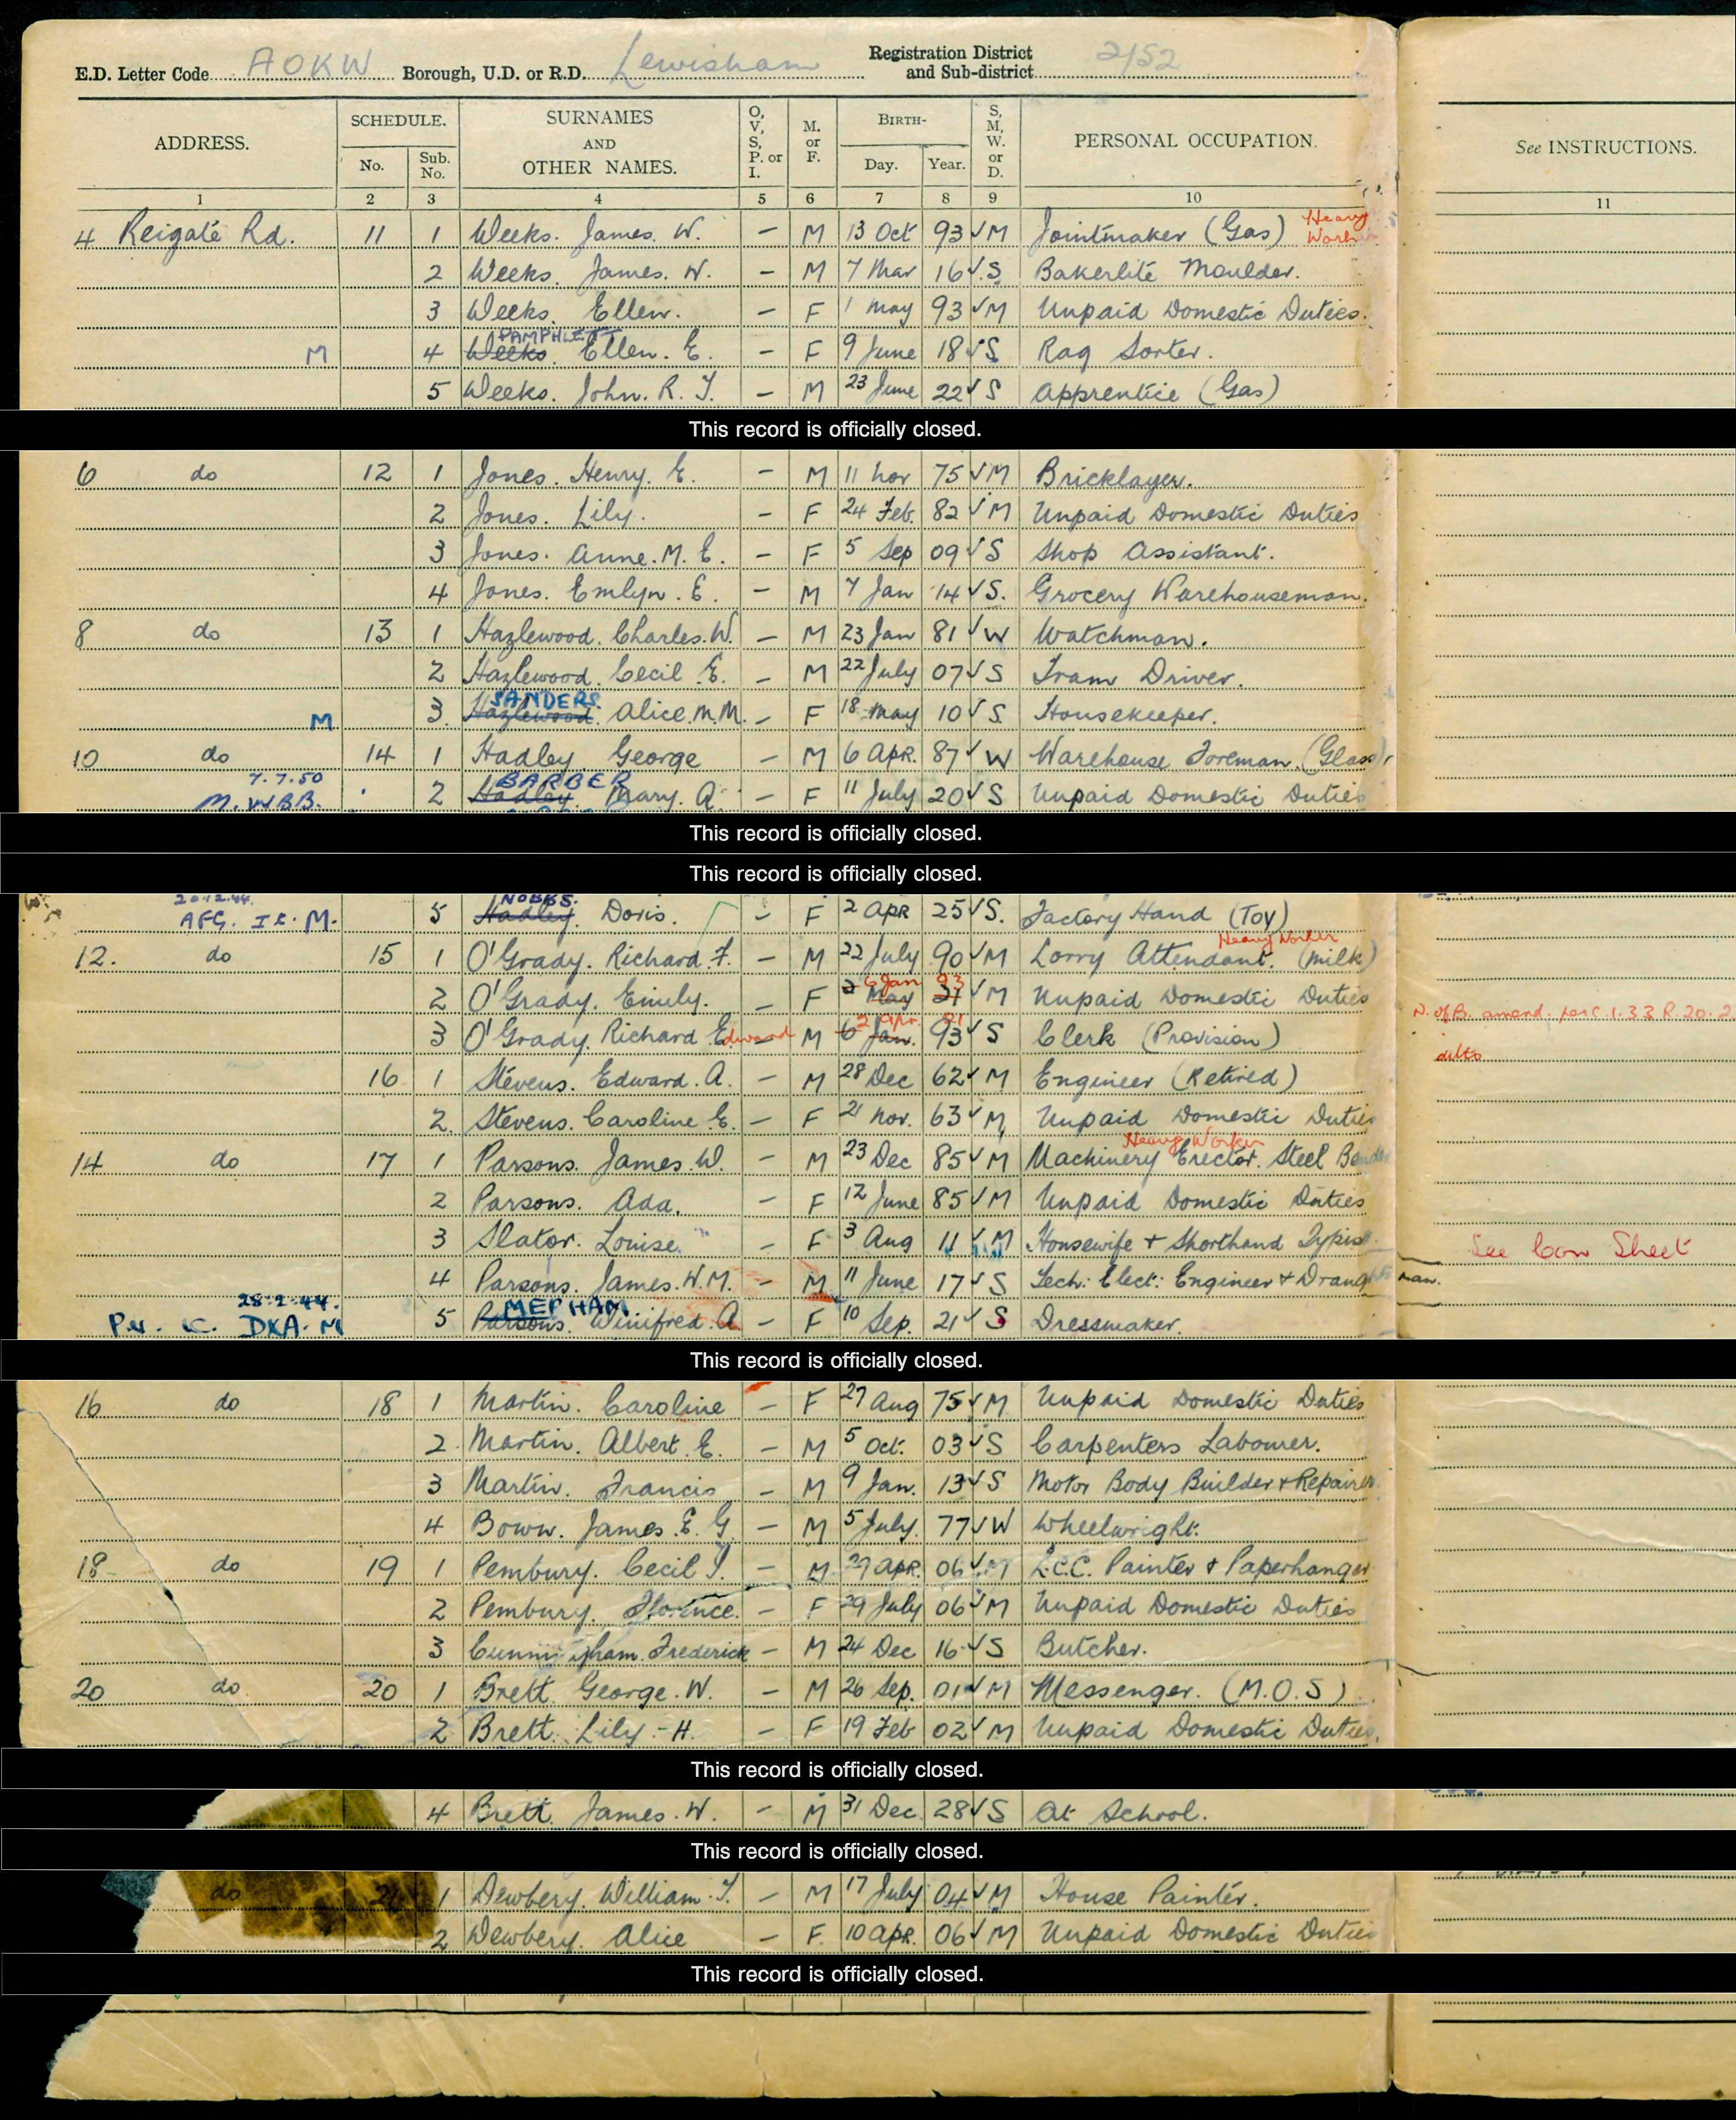 E.D. Letter Code AOKW Borough, U.D. or R.D. Lewisham Registration District and Sub-district 2/52
ADDRESS. SCHEDULE. No. Sub. No. SURNAMES AND OTHER NAMES. O, V, S, P. or I. M. or F. BIRTH- Day. Year. S, M, W. or D. PERSONAL OCCUPATION. See INSTRUCTIONS.
1 2 3 4 5 6 7 8 9 10 11
4 Reigate Rd. 11 1 Weeks. James. W. - M 13 Oct 93 M Jointmaker (Gas) Heavy Worker
2 Weeks. James. W. - M 7 Mar 16 S Bakerlite Moulder.
3 Weeks. Ellen. - F 1 May 93 M Unpaid Domestic Duties.
PAMPHLETT
M 4 Weeks. Ellen. E. - F 9 June 18 S Rag Sorter.
5 Weeks. John. R. T. - M 23 June 22 S Apprentice (Gas)
This record is officially closed.
6 do 12 1 Jones. Henry. E. - M 11 Nov 75 M Bricklayer.
2 Jones. Lily. - F 24 Feb. 82 M Unpaid Domestic Duties
3 Jones. Anne. M. E. - F 5 Sep 09 S Shop Assistant.
4 Jones. Emlyn. E. - M 7 Jan 14 S. Grocery Warehouseman.
8 do 13 1 Hazlewood. Charles. W. - M 23 Jan 81 W Watchman.
2 Hazlewood. Cecil E. - M 22 July 07 S Tram Driver.
SANDERS.
M 3 Hazlewood. Alice. M.M. - F 18 May 10 S. Housekeeper.
10 do 14 1 Hadley. George - M 6 Apr. 87 W Warehouse Foreman. (Glass)
7.7.50 BARBER
M. WBB. 2 Hadley. Mary. A. - F 11 July 20 S Unpaid Domestic Duties
This record is officially closed.
This record is officially closed.
20.12.44. NOBBS.
AFG. I.C. M. 5 Hadley. Doris. - F 2 Apr 25 S. Factory Hand (Toy)
12. do 15 1 O'Grady. Richard. F. - M 22 July 90 M Lorry Attendant. (Milk) Heavy Worker
6 Jan 93
2 O'Grady. Emily. - F 2 May 21 M Unpaid Domestic Duties N. of B. amend. per c. 1.33 R. 20.2
2 Apr. 21
3 O'Grady. Richard Edward - M 6 Jan. 93 S Clerk (Provision) ditto
16 1 Stevens. Edward. A. - M 28 Dec 62 M Engineer (Retired)
2. Stevens. Caroline E. - F 21 Nov. 63 M Unpaid Domestic Duties
Heavy Worker
14 do 17 1 Parsons. James. W. - M 23 Dec 85 M Machinery Erector. Steel Bender
2 Parsons. Ada. - F 12 June 85 M Unpaid Domestic Duties
3 Slator. Louise. - F 3 Aug 11 M Housewife + Shorthand Typist. See Con Sheet
4 Parsons. James. W. M. - M 11 June 17 S Tech: Elect: Engineer + Draughtsman.
28.2.44. MEPHAM
DKA. M 5 Parsons. Winifred. A - F 10 Sep. 21 S Dressmaker.
This record is officially closed.
16 do 18 1 Martin. Caroline - F 27 Aug 75 M Unpaid Domestic Duties
2. Martin. Albert. E. - M 5 Oct. 03 S Carpenters Labourer.
3 Martin. Francis - M 9 Jan. 13 S Motor Body Builder + Repairer.
4 Bown. James. E. G. - M 5 July. 77 W Wheelwright.
18 do 19 1 Pembury. Cecil T. - M 29 Apr. 06 M L.C.C. Painter & Paperhanger
2 Pembury. Florence. - F 29 July 06 M Unpaid Domestic Duties
3 Cunningham. Frederick - M 24 Dec 16 S Butcher.
20 do 20 1 Brett. George. W. - M 26 Sep. 01 M Messenger. (M.O.S)
2 Brett. Lily. H. - F 19 Feb 02 M Unpaid Domestic Duties.
This record is officially closed.
4 Brett. James. W. - M 31 Dec. 28 S At School.
This record is officially closed.
do 21 1 Dewbery. William. T. - M 17 July 04 M House Painter.
2 Dewbery. Alice - F. 10 Apr. 06 M Unpaid Domestic Duties
This record is officially closed.